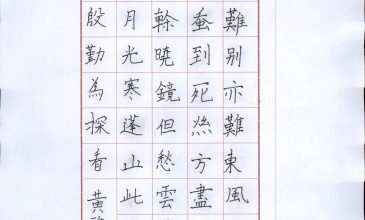 難别亦難東風
蚕到死絲方盡
幹曉鏡但愁雲
月光寒蓬山此
殷勤為探看黃